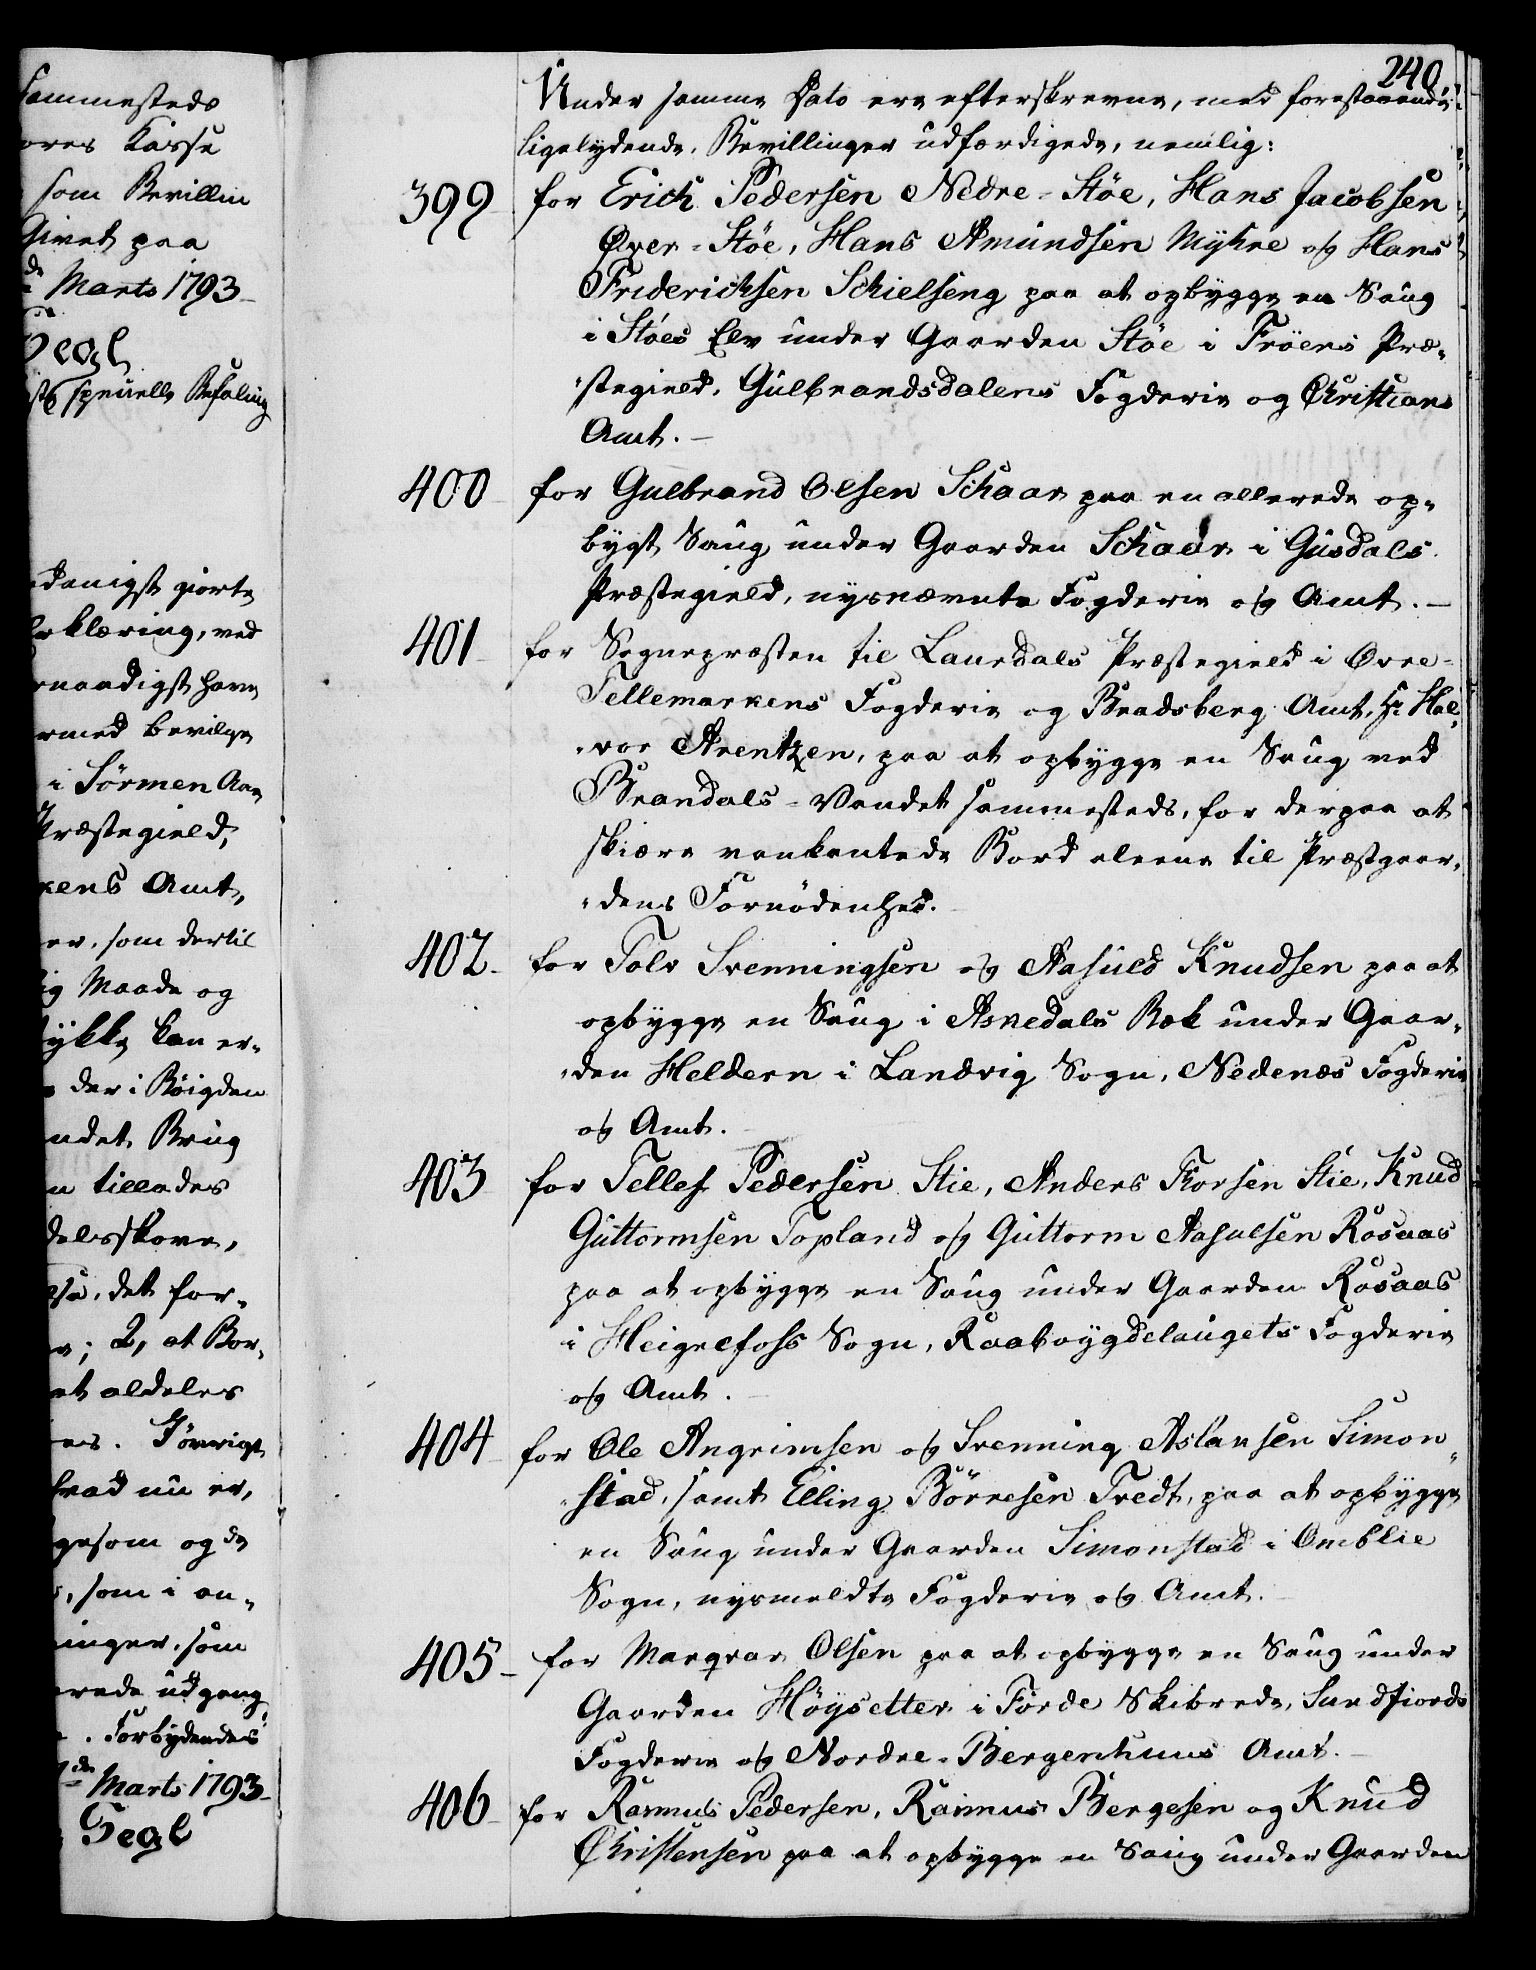 sammesteds
ores Kasse
som Bevillin
Givet paa
de Marts 1793
Segl
specielle Befaling
danigst giorte
Erklæring, ved
rnaadigst have
rmed bevilge
i Sörmen Aae
Præstegield,
kens Amt,
er, som dertil
ig Maade og
ykke kan er-
der i Böigden
ndet Brug
n tillades
delsskove,
det for-
; 2, at Bor-
et aldeles
es. Iövrigt
hvad nu er,
gesom og de
, som i an-
inger, som
erede udgang
. Forbydendes
de Marts 1793
Segl
240
Under samme Dato ere efterskrevne, med forestaaende
ligelydende, Bevillinger udfærdigede, nemlig:
399 for Erich Pedersen Nedre-Stöe, Hans Jacobsen
Över-Stöe, Hans Amundsen Myhre og Hans
Friderichsen Schielseng paa at opbygge en Saug
i Stöes Elv under Gaarden Stöe i Fröens Præ-
stegield, Gulbrandsdalens Fogderie og Christians
Amt.
400 for Gulbrand Olsen Schaar paa en allerede op-
bygt Saug under Gaarden Schaar i Gusdals
Præstegield, nysnævnte Fogderie og Amt.
401 for Sognepræsten til Laurdals Præstegield i Övre-
Tellemarkens Fogderie og Bradsberg Amt, Hr Hal-
vor Arentzen, paa at opbygge en Saug ved
Brandals-Vandet sammesteds, for derpaa at
skiære vankantede Bord alene til Præstgaar-
dens Fornödenhed.
402 for Tolv Svenningsen og Aasuld Knudsen paa at
opbygge en Saug i Asnedals Bæk under Gaar-
den Heldern i Landvig Sogn, Nedenæs Fogderie
og Amt.
403 for Tellef Pedersen Stie, Anders Torsen Stie, Knud
Guttormsen Topland og Guttorm Aasulsen Rosaas
paa at opbygge en Saug under Gaarden Rosaas
i Heigrefoss Sogn, Raaboygdelaugets Fogderie
og Amt.
404 for Ole Angrimsen og Svenning Aslansen Simon-
stad, samt Elling Börresen Tvedt, paa at opbygge
en Saug under Gaarden Simonstad i Omblie
Sogn, nysmeldte Fogderie og Amt.
405 for Marqvar Olsen paa at opbygge en Saug under
Gaarden Höysetter i Förde Skibrede, Sundfiords
Fogderie og Nordre-Bergenhuus Amt.
406 for Rasmus Pedersen, Rasmus Börgesen og Knud
Christensen paa at opbygge en Saug under Gaarden